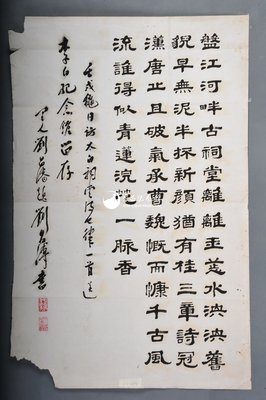 盤江河畔古祠堂離離玉水泱泱舊
貌早無泥半採新顏猶有桂三章詩冠
漢唐止且破氣承曹魏慨而慷千古風
流誰得似青蓮浣花一脈香
壬戌日訪太白祠七律一首
李白紀念館留存
劉題劉書